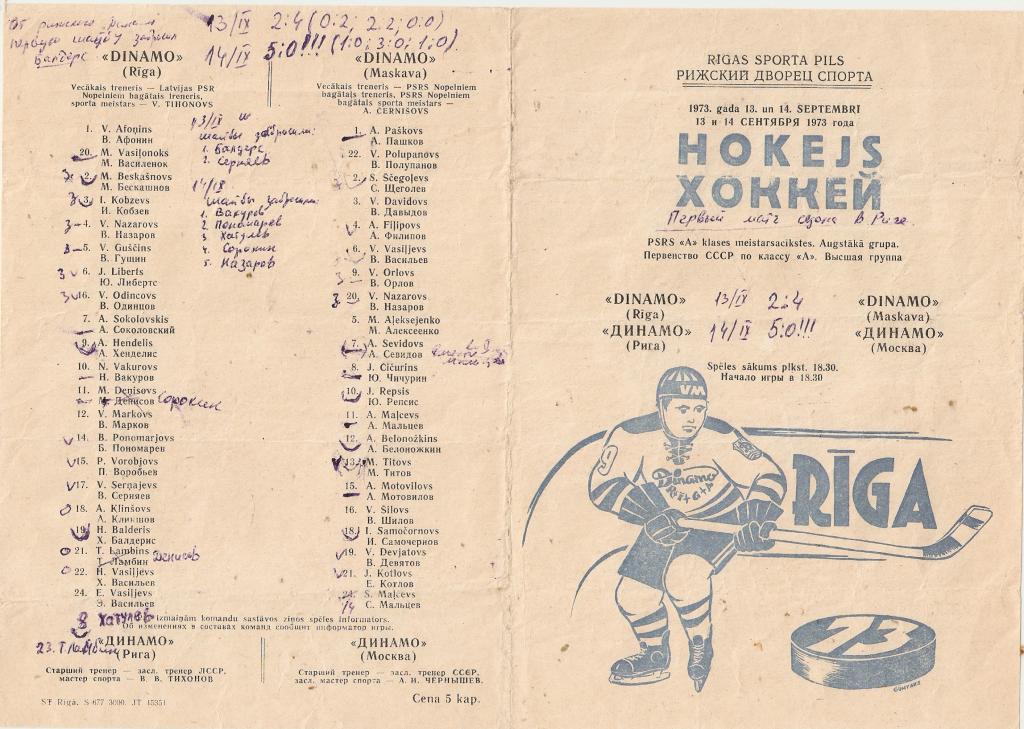 13/IX 2:4 (0:2; 2:2; 0:0)
первую шайбу забросил
Балдерс
14/IX 5:0!!! (1:0; 3:0; 1:0).
«DINAMO»
(Rīga)
Vecākais treneris — Latvijas PSR
Nopelniem bagātais treneris,
sporta meistars — V. TIHONOVS
1. V. Afoņins
В. Афонин
20. M. Vasiļonoks
М. Василенок
3 2. M. Beskašnovs
М. Бескашнов
3. I. Kobzevs
И. Кобзев
3 4. V. Nazarovs
В. Назаров
3 5. V. Guščins
В. Гущин
3 6. J. Liberts
Ю. Либертс
3 16. V. Odincovs
В. Одинцов
7. A. Sokolovskis
А. Соколовский
9. A. Hendelis
А. Хенделис
10. N. Vakurovs
Н. Вакуров
11. M. Deņisovs
М. Денисов Сорокин
12. V. Markovs
В. Марков
14. B. Ponomarjovs
Б. Пономарев
15. P. Vorobjovs
П. Воробьев
17. V. Serņajevs
В. Серняев
18. A. Klinšovs
А. Клиншов
19. H. Balderis
Х. Балдерис
21. T. Lambins
Т. Ламбин Денисов
22. H. Vasiļjevs
Х. Васильев
24. E. Vasiļjevs
Э. Васильев
8 Хатулев
23. Т Ламбин
13/IX
шайбы забросили:
1. Балдерс
2. Серняев
14/IX
шайбы забросили:
1. Вакуров
2. Пономарев
3 Хатулев
4. Сорокин
5. Назаров
«DINAMO»
(Maskava)
Vecākais treneris — PSRS Nopelniem
bagātais treneris, PSRS Nopelniem
bagātais sporta meistars —
A. ČERNIŠOVS
1. A. Paškovs
А. Пашков
22. V. Polupanovs
В. Полупанов
2. S. Ščegoļevs
С. Щеголев
3. V. Davidovs
В. Давыдов
4. A. Fiļipovs
А. Филипов
6. V. Vasiļjevs
В. Васильев
9. V. Orlovs
В. Орлов
3 20. V. Nazarovs
В. Назаров
5. M. Aļeksejenko
М. Алексеенко
7. A. Sevidovs
А. Севидов
8. J. Čičurins
Ю. Чичурин
10. J. Repsis
Ю. Репсис
11. A. Maļcevs
А. Мальцев
12. A. Belonožkins
А. Белоножкин
13. M. Titovs
М. Титов
15. A. Motovilovs
А. Мотовилов
16. V. Šilovs
В. Шилов
18. I. Samočornovs
И. Самочернов
19. V. Devjatovs
В. Девятов
21. J. Kotlovs
Е. Котлов
24. S. Maļcevs
14 С. Мальцев
izmaiņām komandu sastāvos ziņos spēles informators.
Об изменениях в составах команд сообщит информатор игры.
«ДИНАМО»
(Рига)
Старший тренер — засл. тренер ЛССР,
мастер спорта — В. В. ТИХОНОВ
«ДИНАМО»
(Москва)
Старший тренер — засл. тренер СССР,
засл. мастер спорта — А. И. ЧЕРНЫШЕВ.
ST Rīgā. S-677 3000. JT 15351
Cena 5 kap.
RĪGAS SPORTA PILS
РИЖСКИЙ ДВОРЕЦ СПОРТА
1973. gada 13. un 14. SEPTEMBRĪ
13 и 14 СЕНТЯБРЯ 1973 года
HOKEJS
ХОККЕЙ
Первый матч сезона в Риге.
PSRS «A» klases meistarsacīkstes. Augstākā grupa.
Первенство СССР по классу «А». Высшая группа
«DINAMO» 13/IX 2:4 «DINAMO»
(Rīga) (Maskava)
«ДИНАМО» 14/IX 5:0!!! «ДИНАМО»
(Рига) (Москва)
Spēles sākums plkst. 18.30.
Начало игры в 18.30
VM
9
Dinamo
RĪGA
RĪGA
73